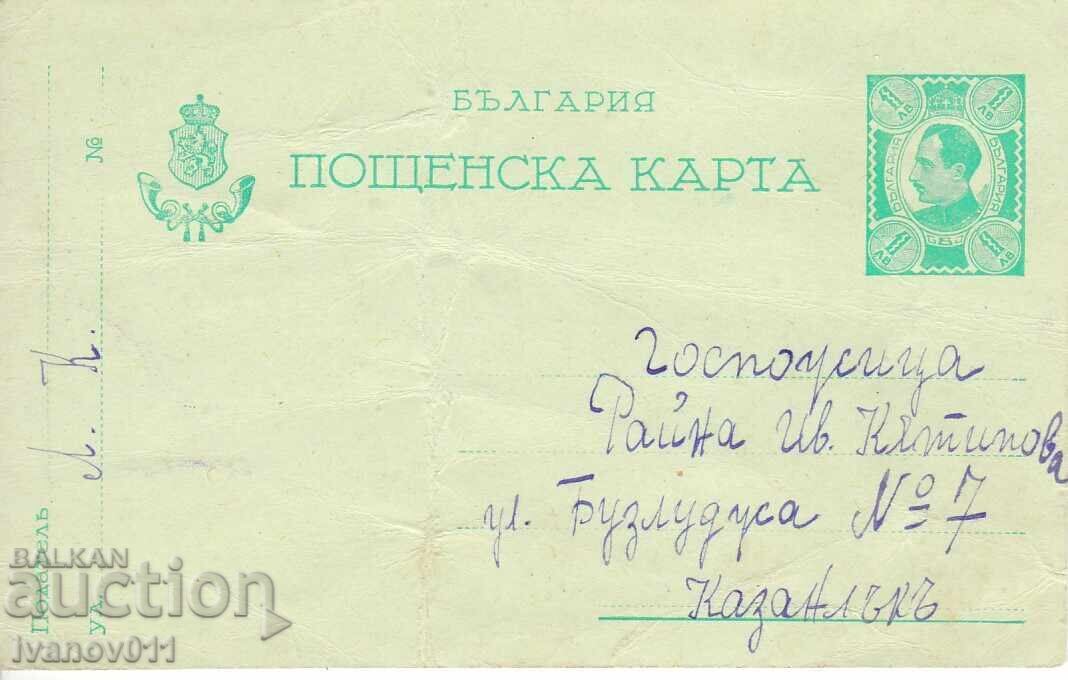 БЪЛГАРИЯ
ПОЩЕНСКА КАРТА
1 ЛВ 1 ЛВ
БЪЛГАРИЯ БЪЛГАРИЯ
1 ЛВ 1 ЛВ
№
Податель Л. К.
ул.
Госпожица
Райна Ив. Кятипова
ул. Бузлуджа № 7
Казанлъкъ
BALKAN
auction
ivanov011